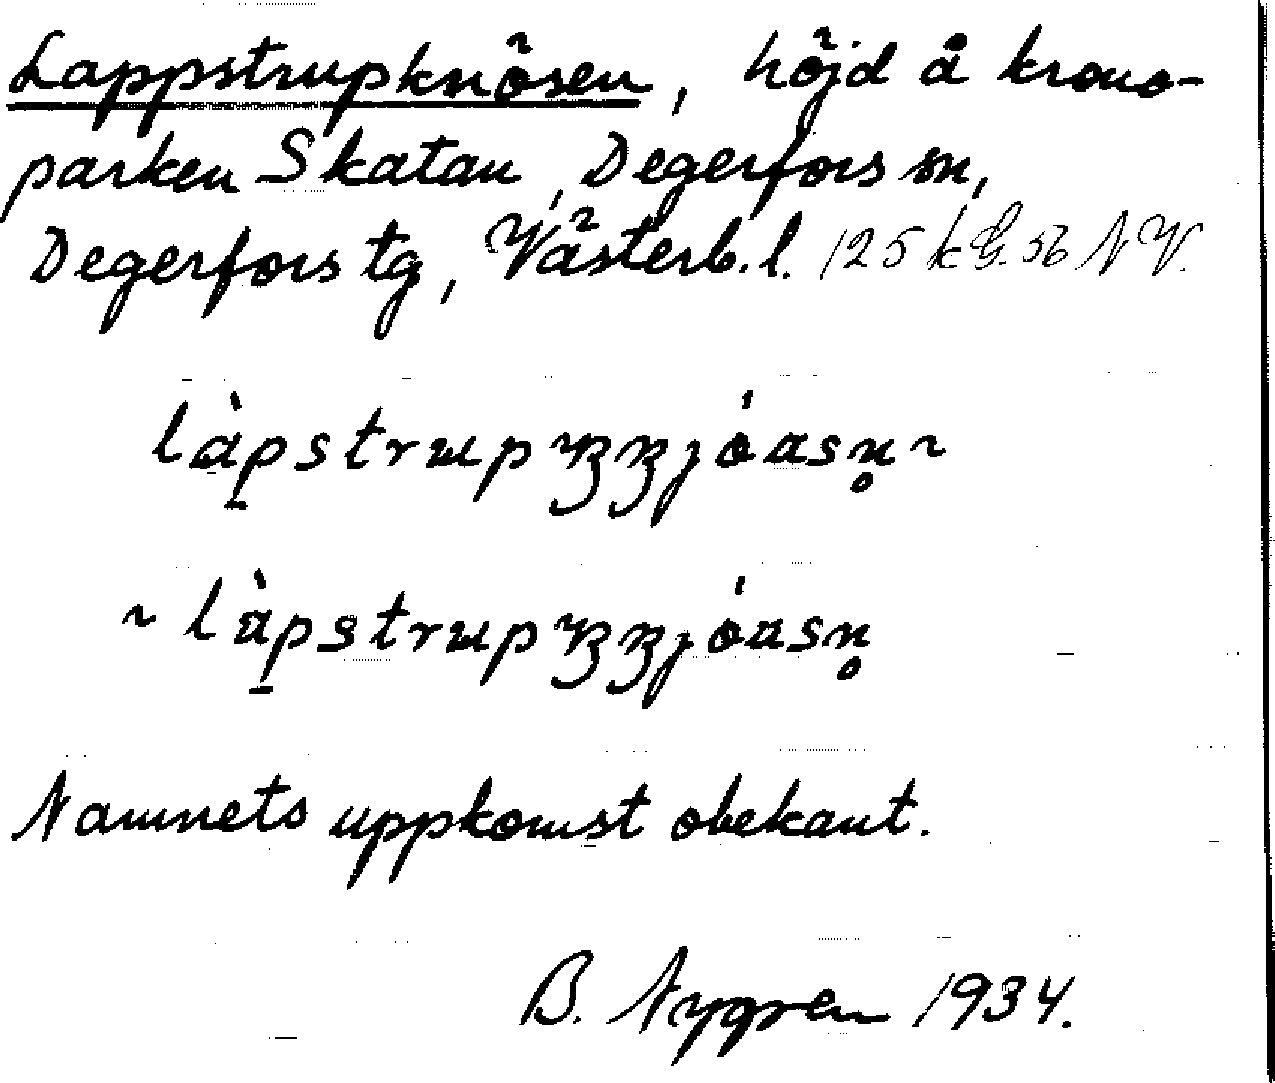 Lappstrupknösen, höjd å krono-
parken Skatan, Degerfors sn,
Degerfors tg, Västerb. l. 125 k G. 56 NV.
Namnets uppkomst obekant.
B. Nygren 1934.